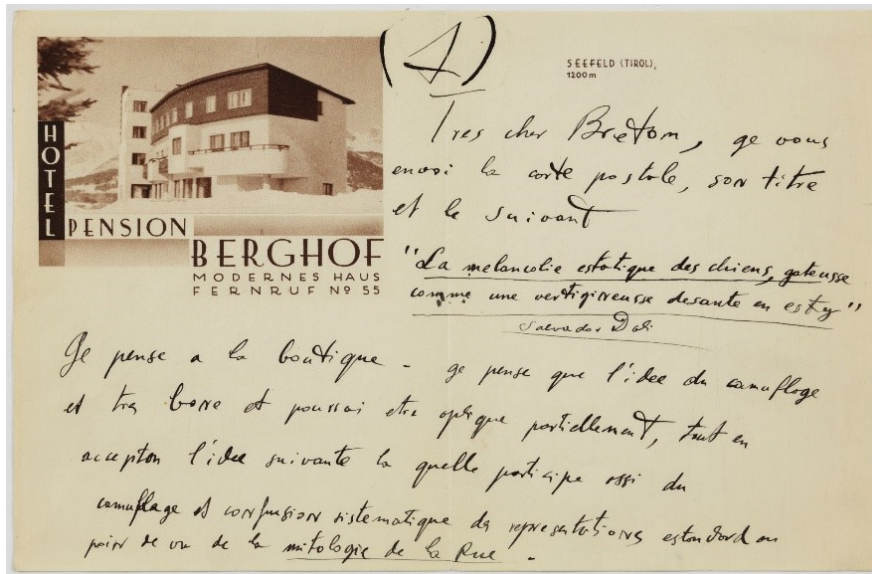 HOTEL
PENSION
BERGHOF
MODERNES HAUS
FERNRUF Nº 55
(1)
SEEFELD (TIROL),
1200 m
Tres cher Breton, ge vous
envoi la carte postale, son titre
et le suivant
"La melancolie estatique des chiens, gateusse
comme une vertigineusse desante en esky"
Salvador Dali
Ge pense a la boutique - ge pense que l'idee du camuflage
et tres bonne et pourrai etre partiellement, tout en
accepton l'idee suivante la quelle participe ossi du
camuflage et confusion sistematique des representations estondord au
poin de vu de la mitologie de la Rue -